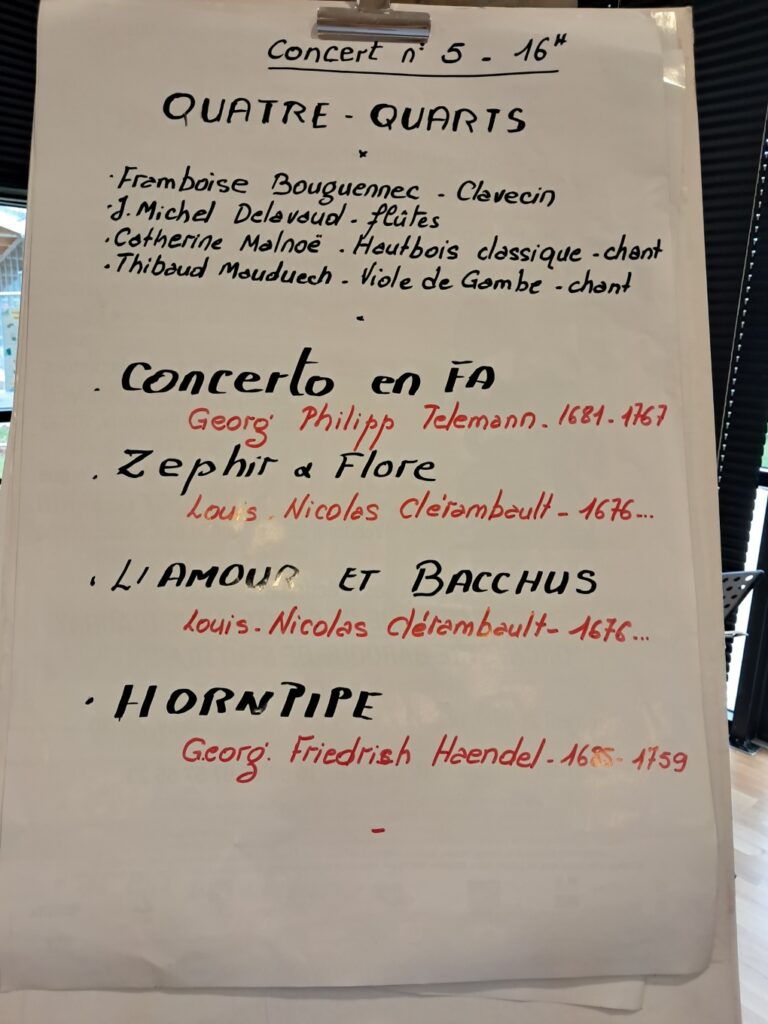 Concert n° 5 - 16H
QUATRE - QUARTS
· Framboise Bouguennec - Clavecin
· J. Michel Delavaud - flûtes
· Catherine Malnoë - Hautbois classique - chant
· Thibaud Mauduech - Viole de Gambe - chant
· Concerto en FA
Georg Philipp Telemann - 1681 - 1767
· Zephir & Flore
Louis - Nicolas Clérambault - 1676...
· L'AMOUR ET BACCHUS
Louis - Nicolas Clérambault - 1676...
· HORNPIPE
Georg. Friedrish Haendel - 1685 - 1759